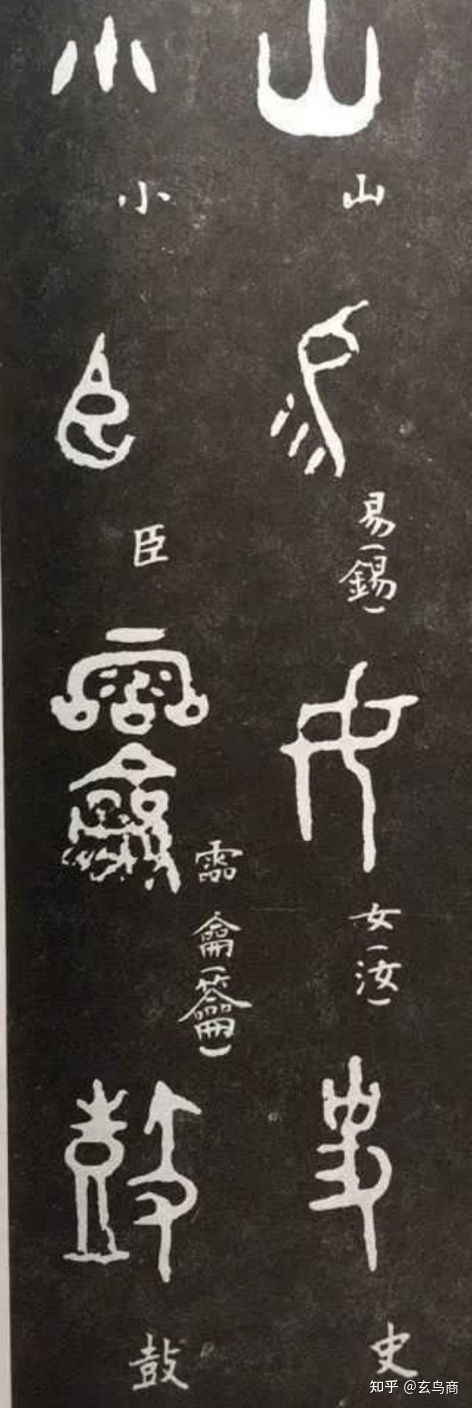 山
易(錫)
女(汝)
史
小
臣
霝
龠(籥)
鼓
知乎 @玄鸟商